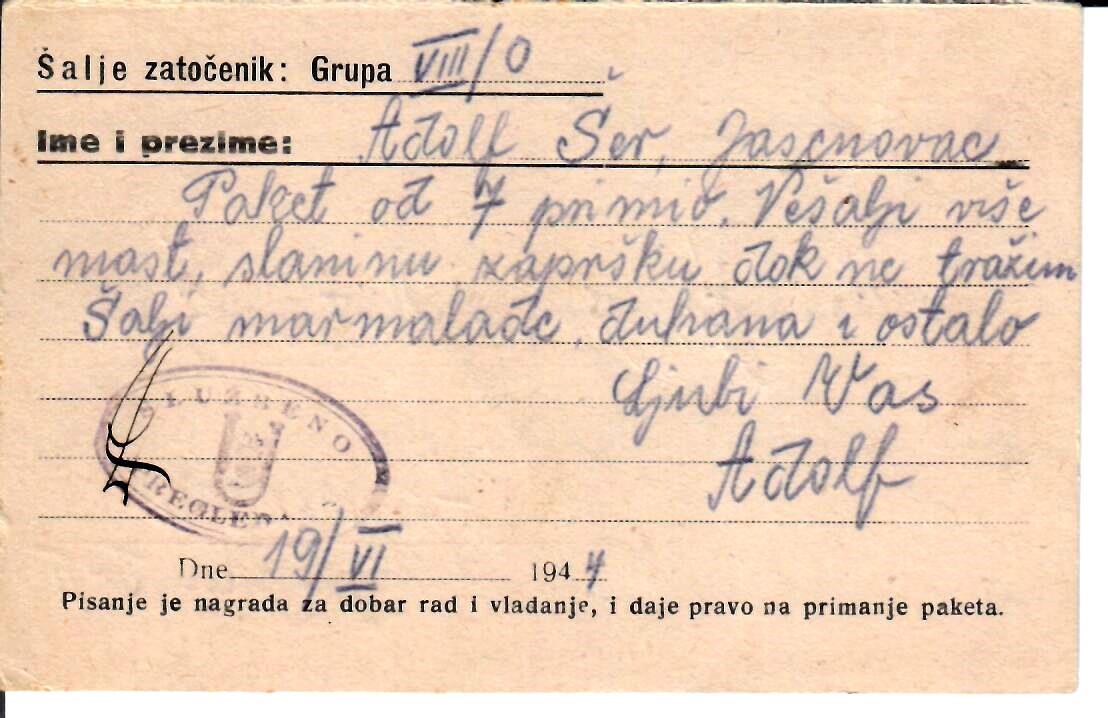 Šalje zatočenik: Grupa VIII/0
Ime i prezime: Adolf Šer, Jasenovac
Paket od 7 primio. Nešalji više
mast, slaninu zapršku dok ne tražim
Šalji marmalade, duhana i ostalo
Ljubi Vas
Adolf
SLUŽBENO
PREGLEDANO
Dne 19/VI 1944
Pisanje je nagrada za dobar rad i vladanje, i daje pravo na primanje paketa.